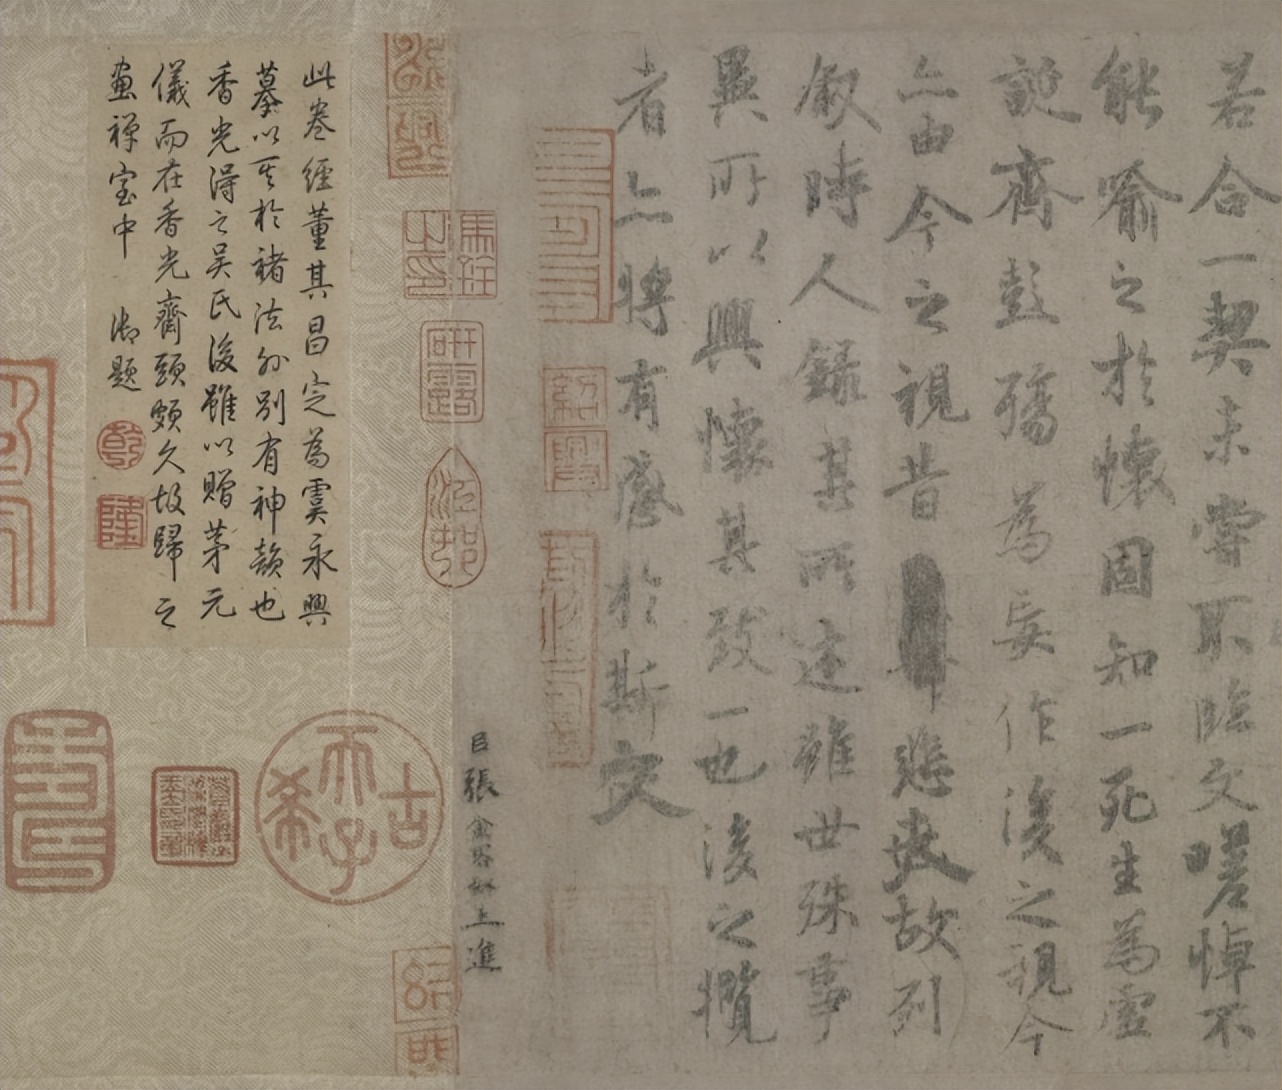 若合一契未嘗不臨文嗟悼不
能喻之於懷固知一死生為虛
誕齊彭殤為妄作後之視今
亦由今之視昔悲夫故列
叙時人錄其所述雖世殊事
異所以興懷其致一也後之攬
者亦將有感於斯文
臣張金界奴上進
此卷經董其昌定為虞永興
摹以其於褚法外別有神韻也
香光得之吳氏後雖以贈茅元
儀而在香光齋頭頗久故歸之
畫禪室中 御題
乾
隆
紹
興
古希天子